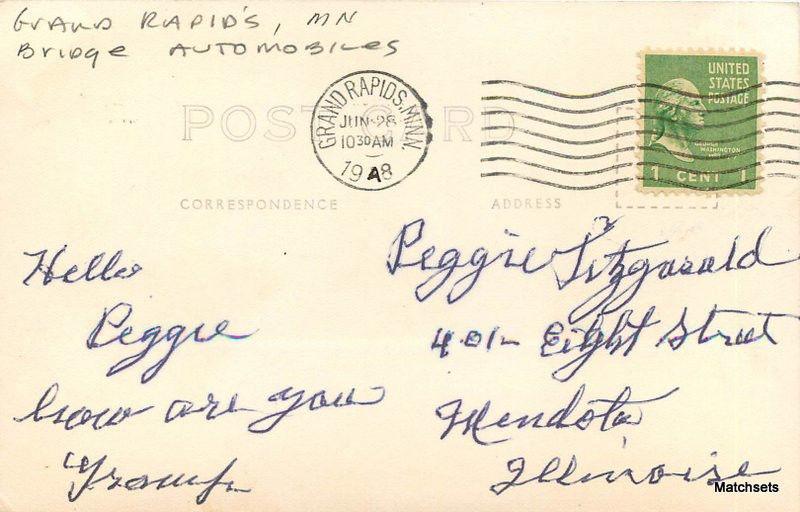 GRAND RAPID'S, MN
Bridge AUTOMOBILES
POST CARD
GRAND RAPIDS, MINN.
JUN 28
10 30 AM
1948
UNITED
STATES
POSTAGE
GEORGE
WASHINGTON
1 CENT 1
CORRESPONDENCE
ADDRESS
Hello
Peggie
how are you
Gramp
Peggie Fitzgarald
401- Eight Street
Mendota
Illinoise
Matchsets